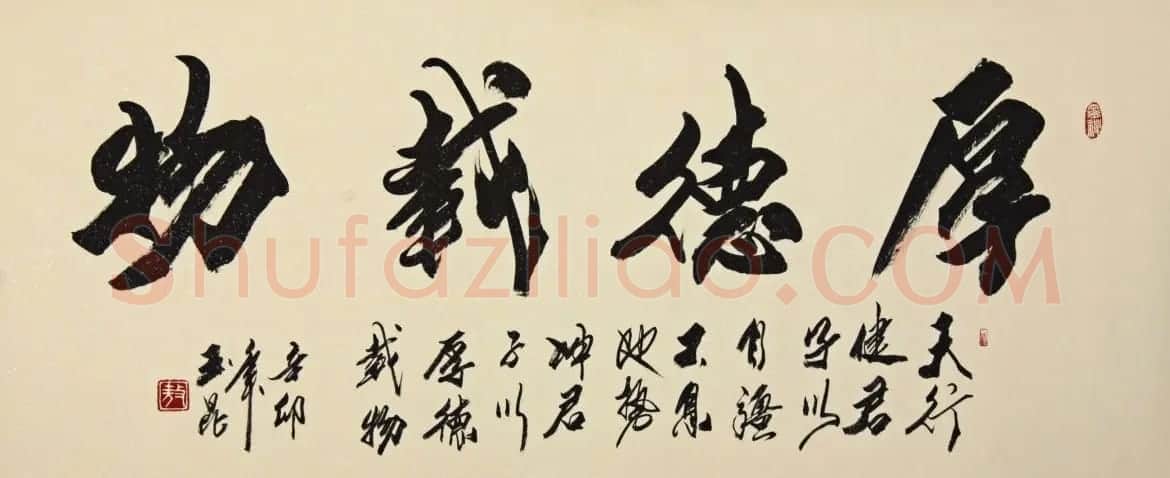 厚德載物
天行
健君
子以
自強
不息
地勢
坤君
子以
厚德
載物
辛卯
年
玉昆
敖
Shufaziliao.COM